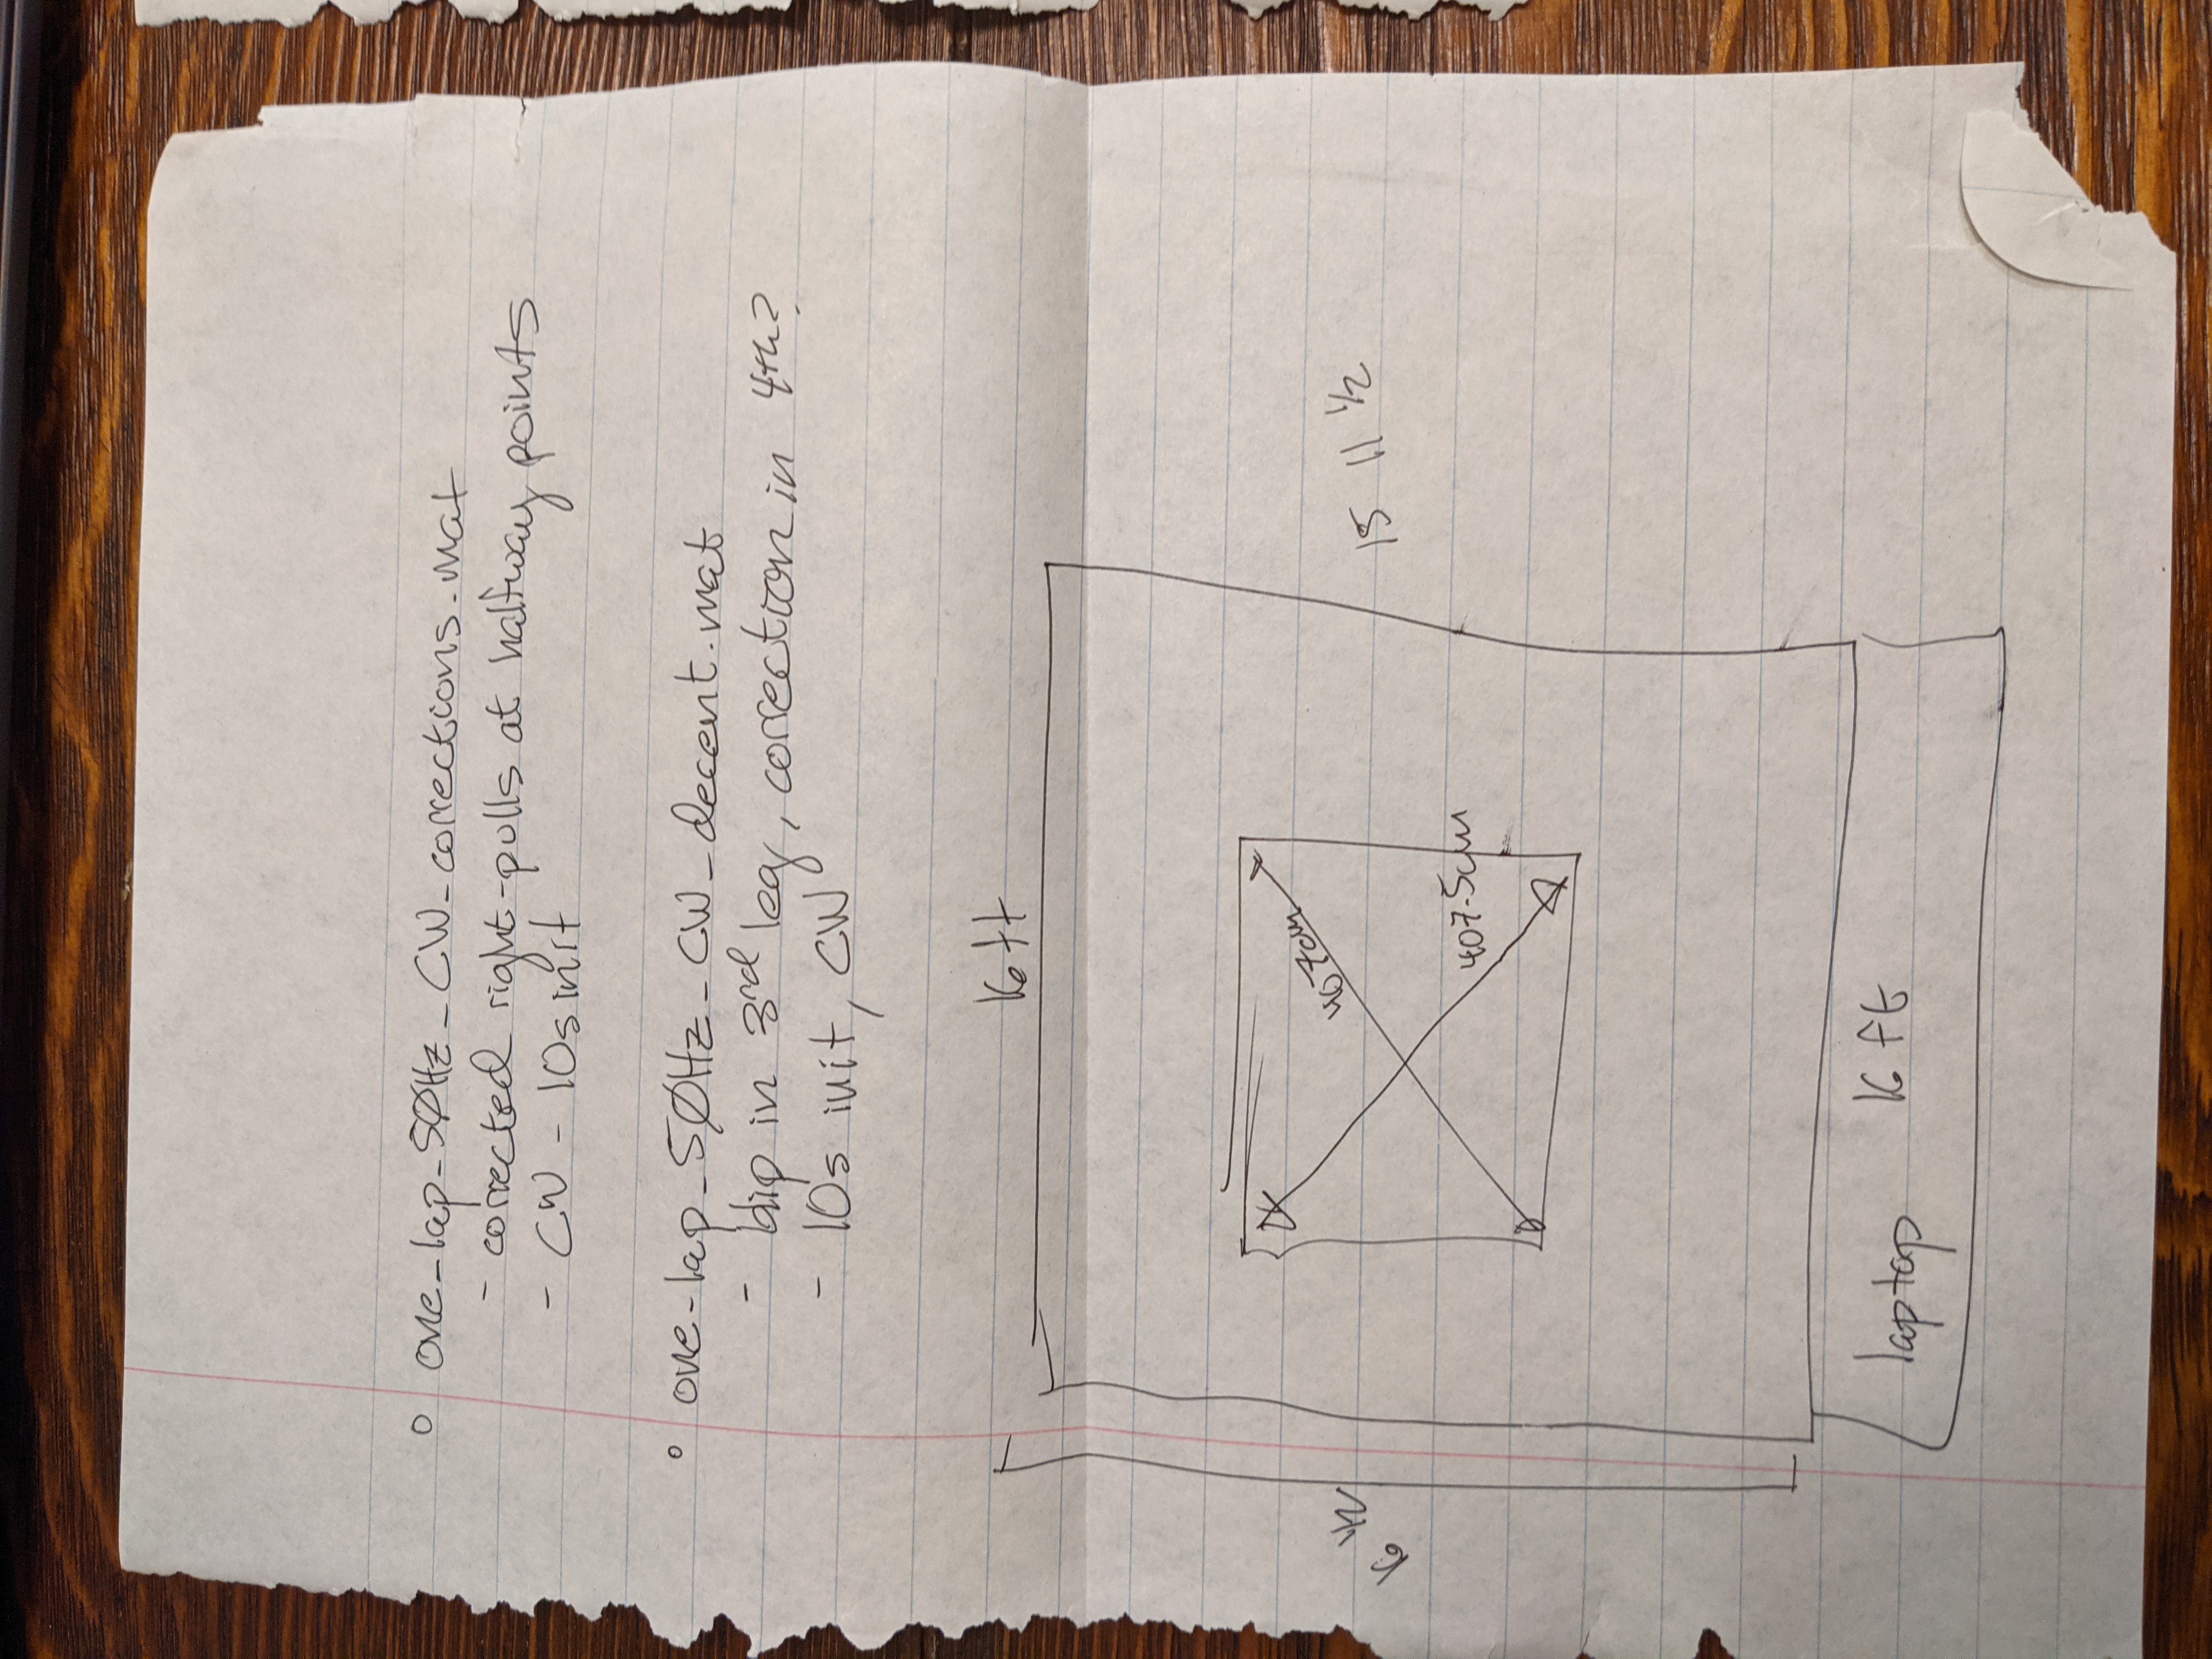 ○ one_lap_5ØHz_CW_corrections.mat
- corrected right-pulls at halfway points
- CW - 10s init
○ one_lap_5ØHz_CW_decent.mat
- blip in 3rd leg, correction in 4th?
- 10s init, CW
16 ft
407cm
16 1/2
15 11 1/2
407.5cm
laptop 16 ft